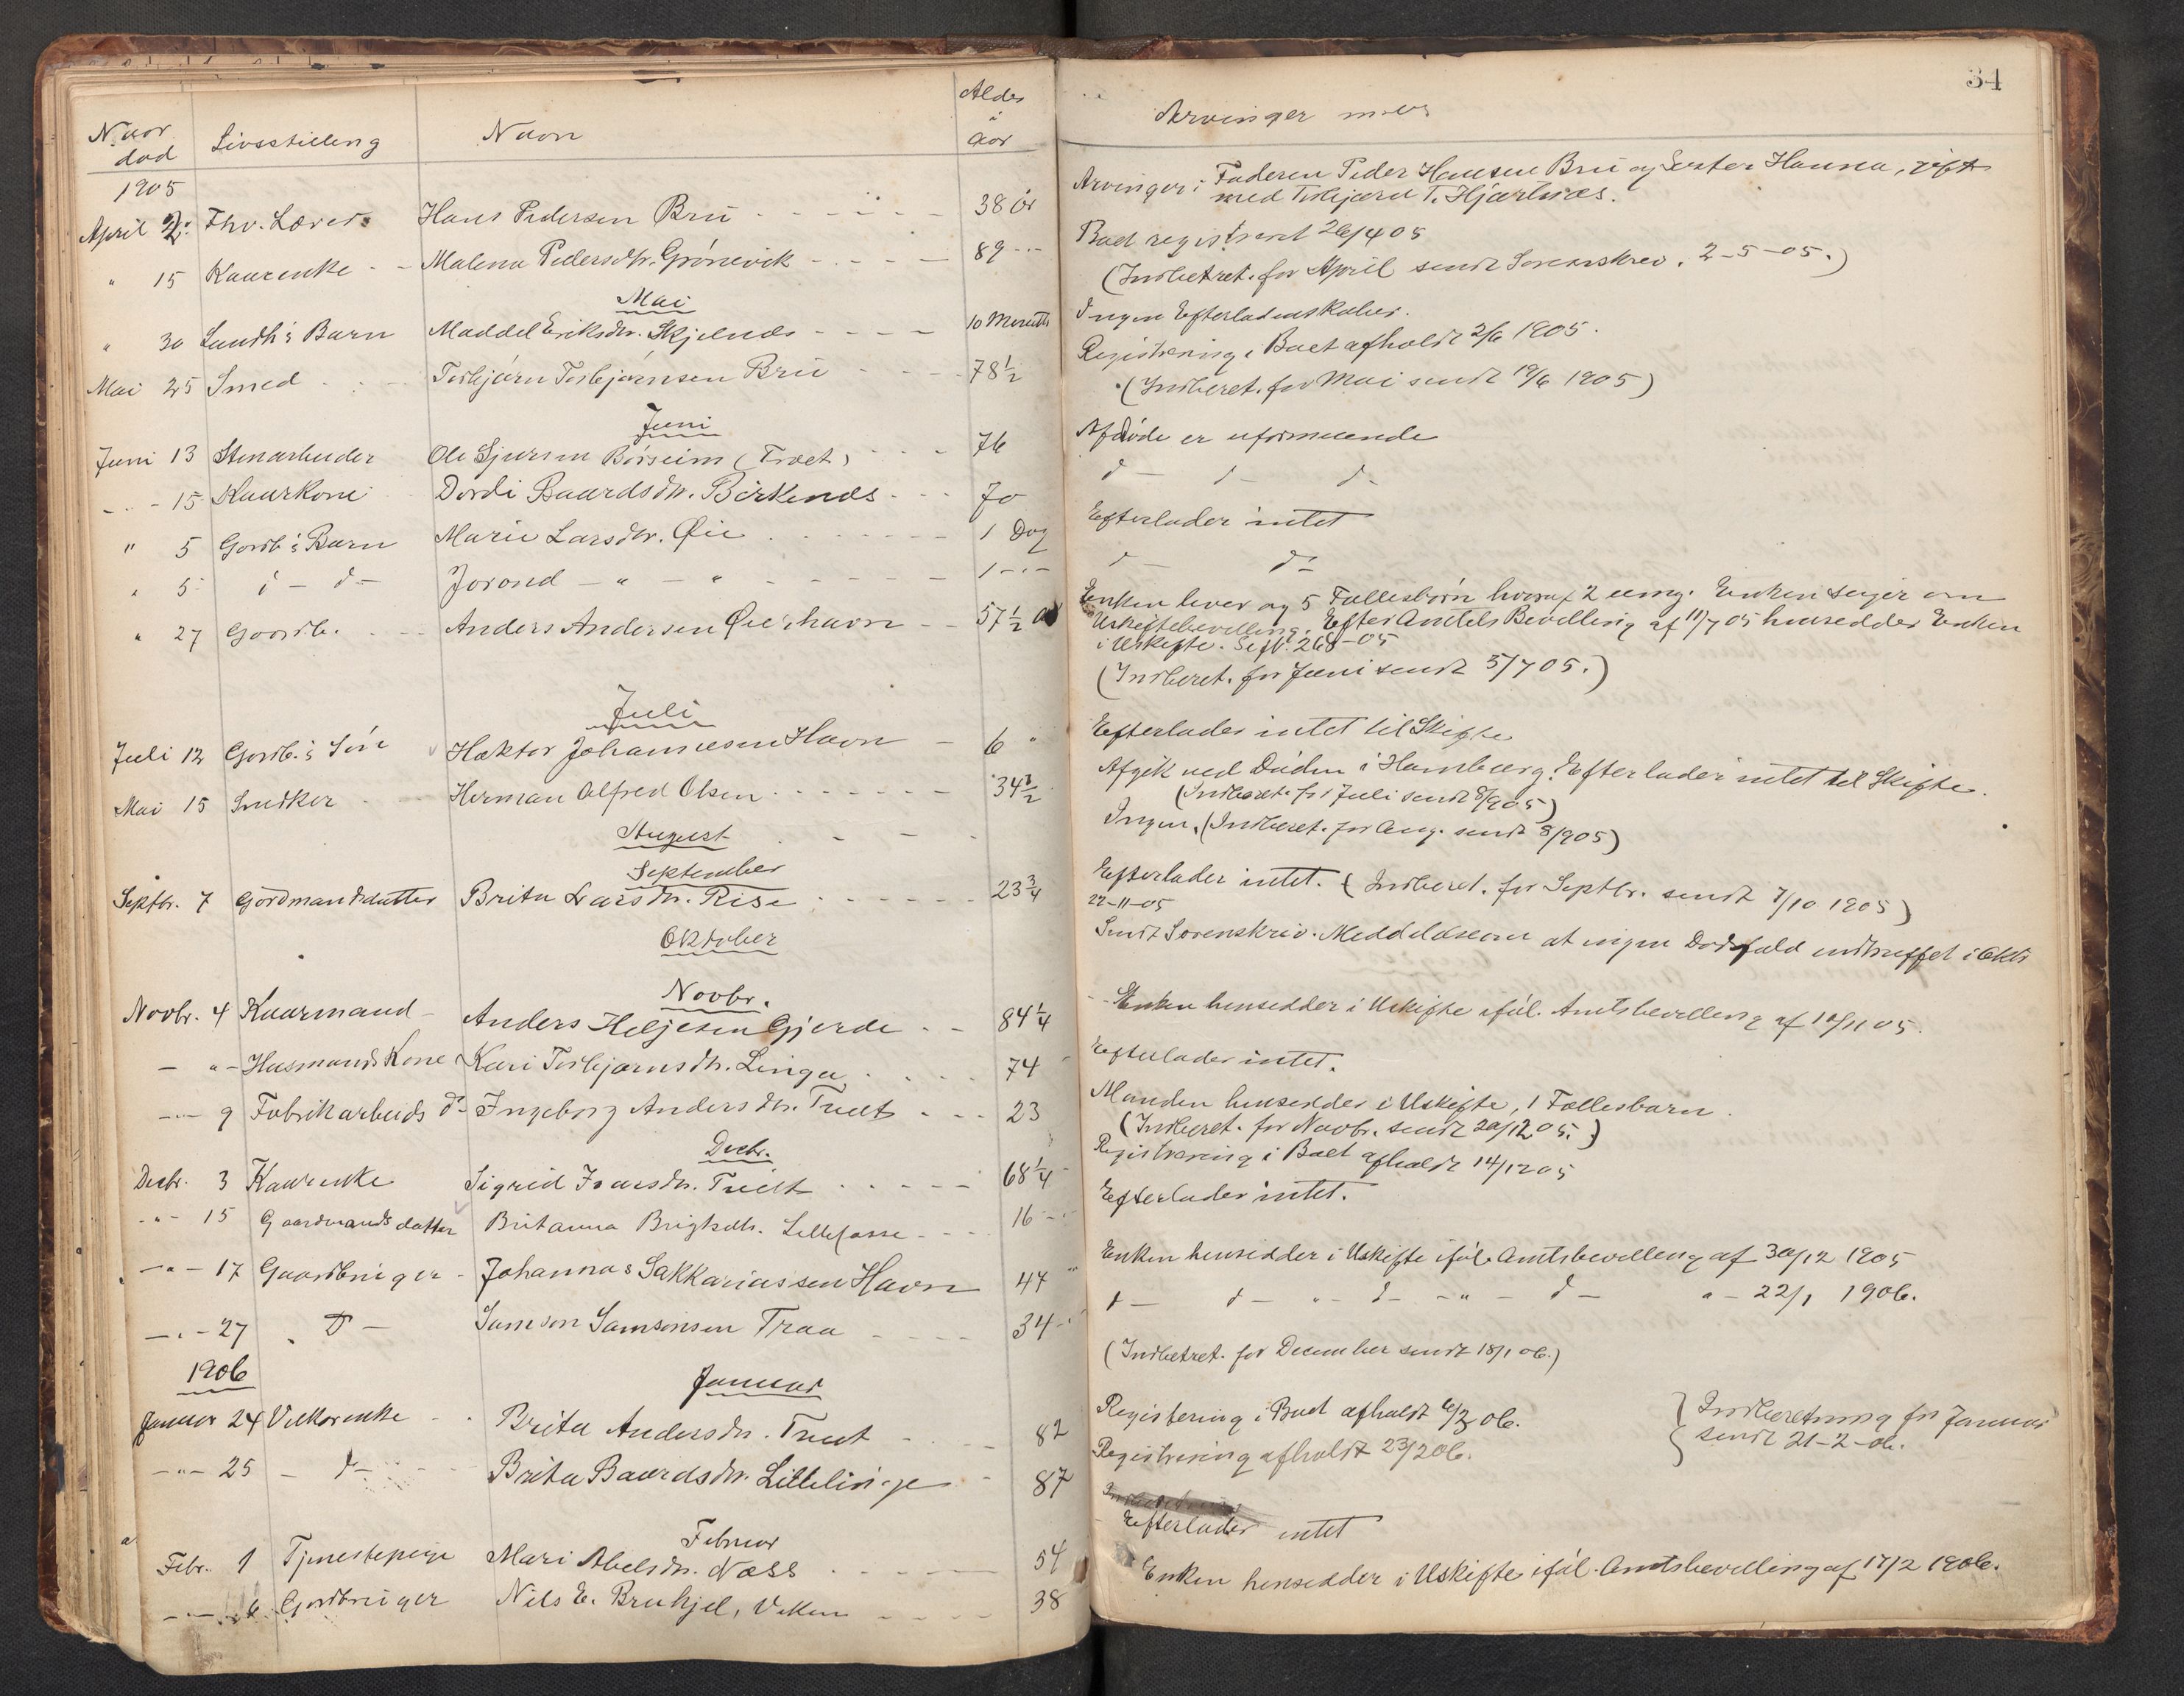 Naar død | Livsstilling | Navn | Alder i Aar
1905
April 2. Fhv. Lærer. Hans Pedersen Bru 38 År
" 15 Kaarenke Malena Pedersdtr. Grønevik 89
Mai
" 30 Gaardb.s Barn Maddel Eriksdtr. Skjelnæs 10 Minutts
Mai 25 Smed Torbjørn Torbjørnsen Bru 78 1/2
Juni
Juni 13 Stenarbeider Ole Sjursen Børseim (Tvæt) 76
" 15 Kaarkone Dordi Baardsdtr. Birkenæs 70
" 5 Gardb.s Barn Marie Larsdtr. Øie 1 Dag
" 5 d - d - Jorond - " - " 1 - " -
" 27 Gaardb. Anders Andersen Øie, havn 57 1/2 Aar
Juli
Juli 12 Gardb.s Søn Haktor Johannesen Havn 6 "
Mai 15 Snedker Herman Alfred Olsen 34 1/2
August
September
Septbr. 7 Gårdmandsdatter Brita Larsdtr. Rise 23 3/4
Oktober
Novbr.
Novbr. 4 Kaarmand Anders Heljesen Gjerde 84 1/4
- " - Husmands Kone Kari Torbjørnsdtr. Linga 74
- " - 9 Fabrikarbeids do Ingeborg Andersdtr. Tvedt 23
Decbr.
Decbr. 3 Kaarenke Sigrid Ivarsdtr. Tvedt 68 1/4
- " - 15 Gaardmandsdatter Britanna Brigtsdtr. Lillefosse 16
- " - 17 Gaardbruger Johannes Sakkariassen Havn 47 "
- " - 27 D - Samson Samsonsen Traa 34
1906
Januar
Januar 24 Vilkorenke Brita Andersdtr. Tvedt 82
- " - 25 - d - Brita Baardsdtr. Lillelinge 87
Februar
Febr. 1 Tjenestepige Mari Abelsdtr. Næss 54
- " - 6 Gardbruger Nils E. Brukjel, Viken 38
34
Arvinger m.v.
Arvinger: Faderen Peder Hansen Bru og Søster Hanna, gift
med Torbjørn T. Hjartnæs.
Boet registreret 26/4 05
(Indberet. for April sendt Sorenskrev. 2-5-05.)
Ingen Efterladenskaber.
Registrering i Boet afholdt 2/6 1905.
(Indberet. for Mai sendt 19/6 1905)
Afdøde er uformuende
d - d - d -
Efterlader intet
d - d -
Enken lever og 5 Fællesbørn hvoraf 2 umy. Enken søger om
Uskiftebevilling. Efter Amtets Bevilling af 11/7 05 hensidder Enken
i Uskifte. 26/8-05
(Indberet. for Juni sendt 5/7 05.)
Efterlader intet til Skifte
Afgik ved Døden i Hamburg. Efterlader intet til Skifte.
(Indberet. for Juli sendt 8/9 05)
Ingen. (Indberet. for Aug. sendt 8/9 05)
Efterlader intet. (Indberet. for Septbr. sendt 7/10 1905)
22-11-05
Sendt Sorenskriv. Meddelelse om at ingen Dødsfald indtruffet i Oktr
Enken hensidder i Uskifte iføl. Amtsbevilling af 10/11 05.
Efterlader intet.
Manden hensidder i Uskifte, 1 Fællesbarn.
(Indberet. for Novbr. sendt 20/12 05.)
Registrering i Boet afholdt 14/12 05
Efterlader intet.
Enken hensidder i Uskifte iføl. Amtsbevilling af 30/12 1905
d - d - " - d - " - d - " - 22/1 1906.
(Indberet. for December sendt 18/1 06.)
Registering i Boet afholdt 6/3 06. } Indberetning for Januar
Registrering afholdt 23/2 06. sendt 21-2-06.
Efterlader intet
Enken hensidder i Uskifte iføl. Amtsbevilling af 17/2 1906.